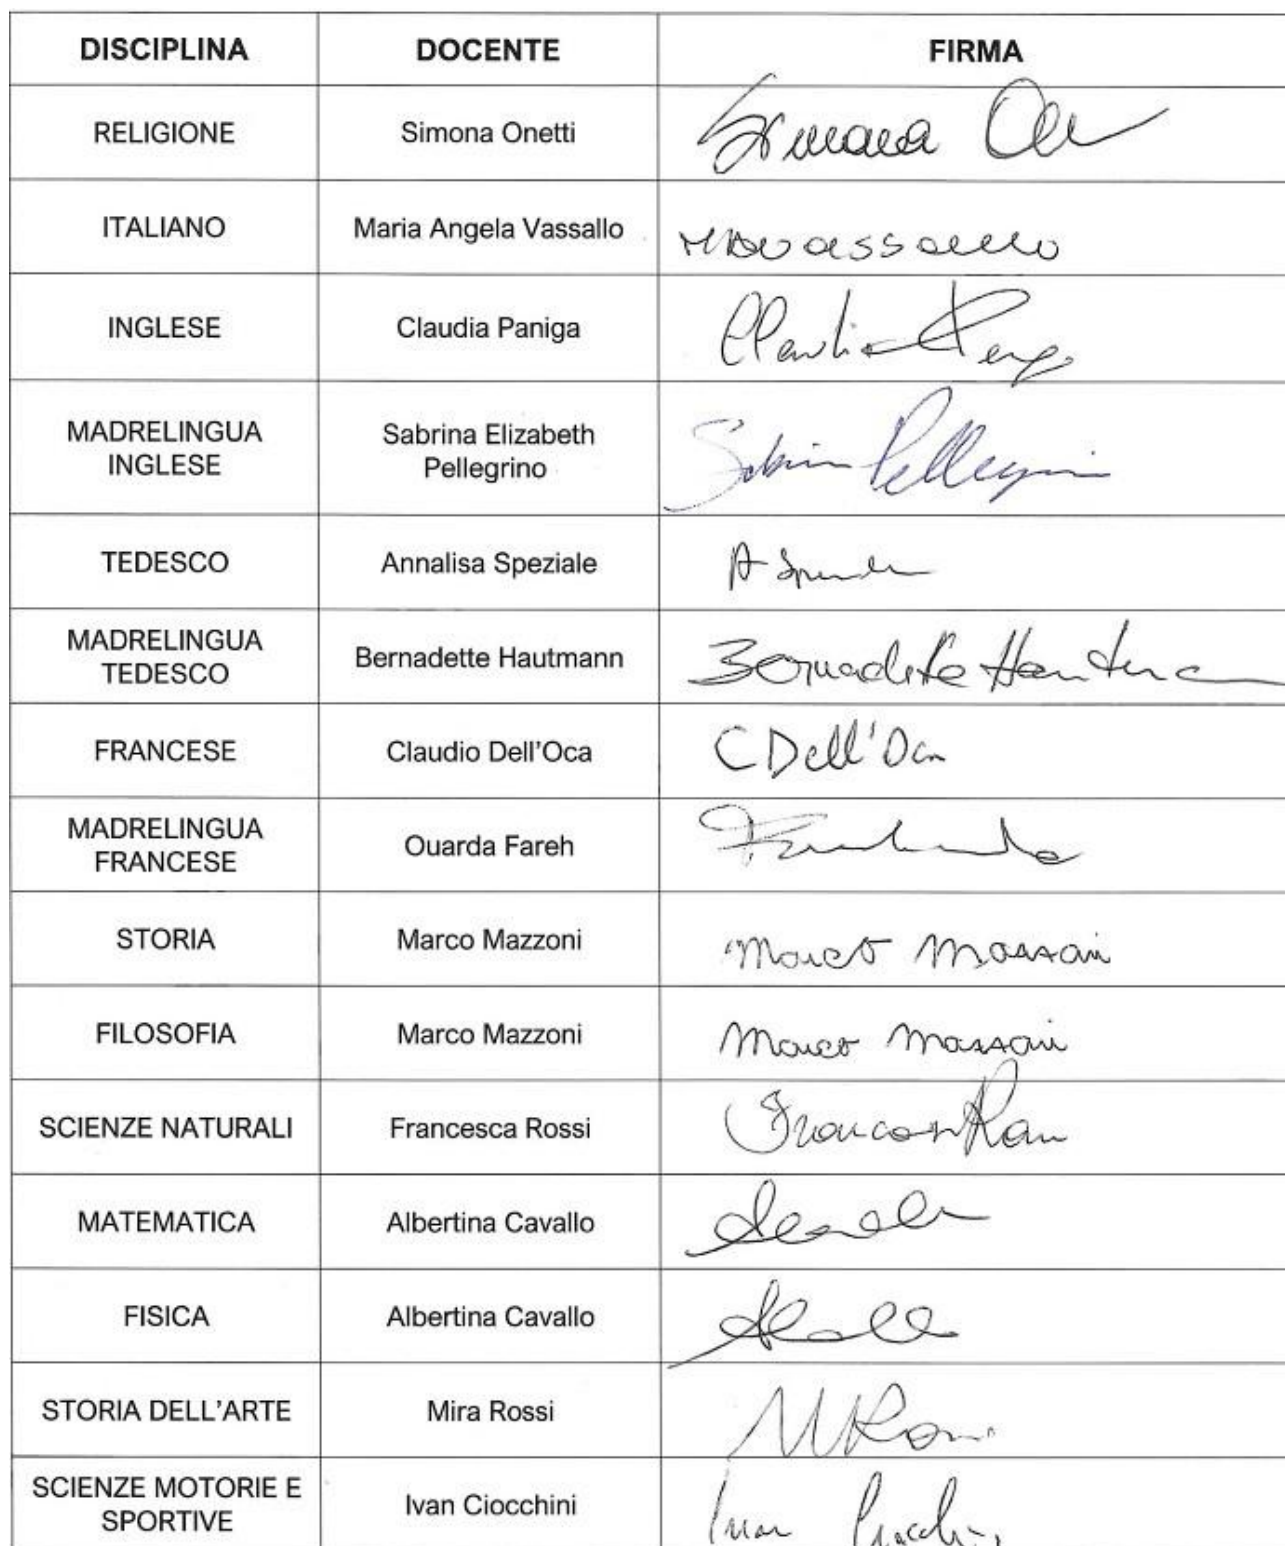 DISCIPLINA DOCENTE FIRMA
RELIGIONE Simona Onetti Simona
ITALIANO Maria Angela Vassallo MAVassallo
INGLESE Claudia Paniga Claudia
MADRELINGUA
INGLESE
Sabrina Elizabeth
Pellegrino
Pellegrin
TEDESCO Annalisa Speziale A
MADRELINGUA
TEDESCO
Bernadette Hautmann Bernadette
FRANCESE Claudio Dell'Oca C Dell'Oca
MADRELINGUA
FRANCESE
Ouarda Fareh
STORIA Marco Mazzoni Marco Mazzoni
FILOSOFIA Marco Mazzoni Marco Mazzoni
SCIENZE NATURALI Francesca Rossi Francesca Rossi
MATEMATICA Albertina Cavallo
FISICA Albertina Cavallo
STORIA DELL'ARTE Mira Rossi M Rossi
SCIENZE MOTORIE E
SPORTIVE
Ivan Ciocchini Ivan